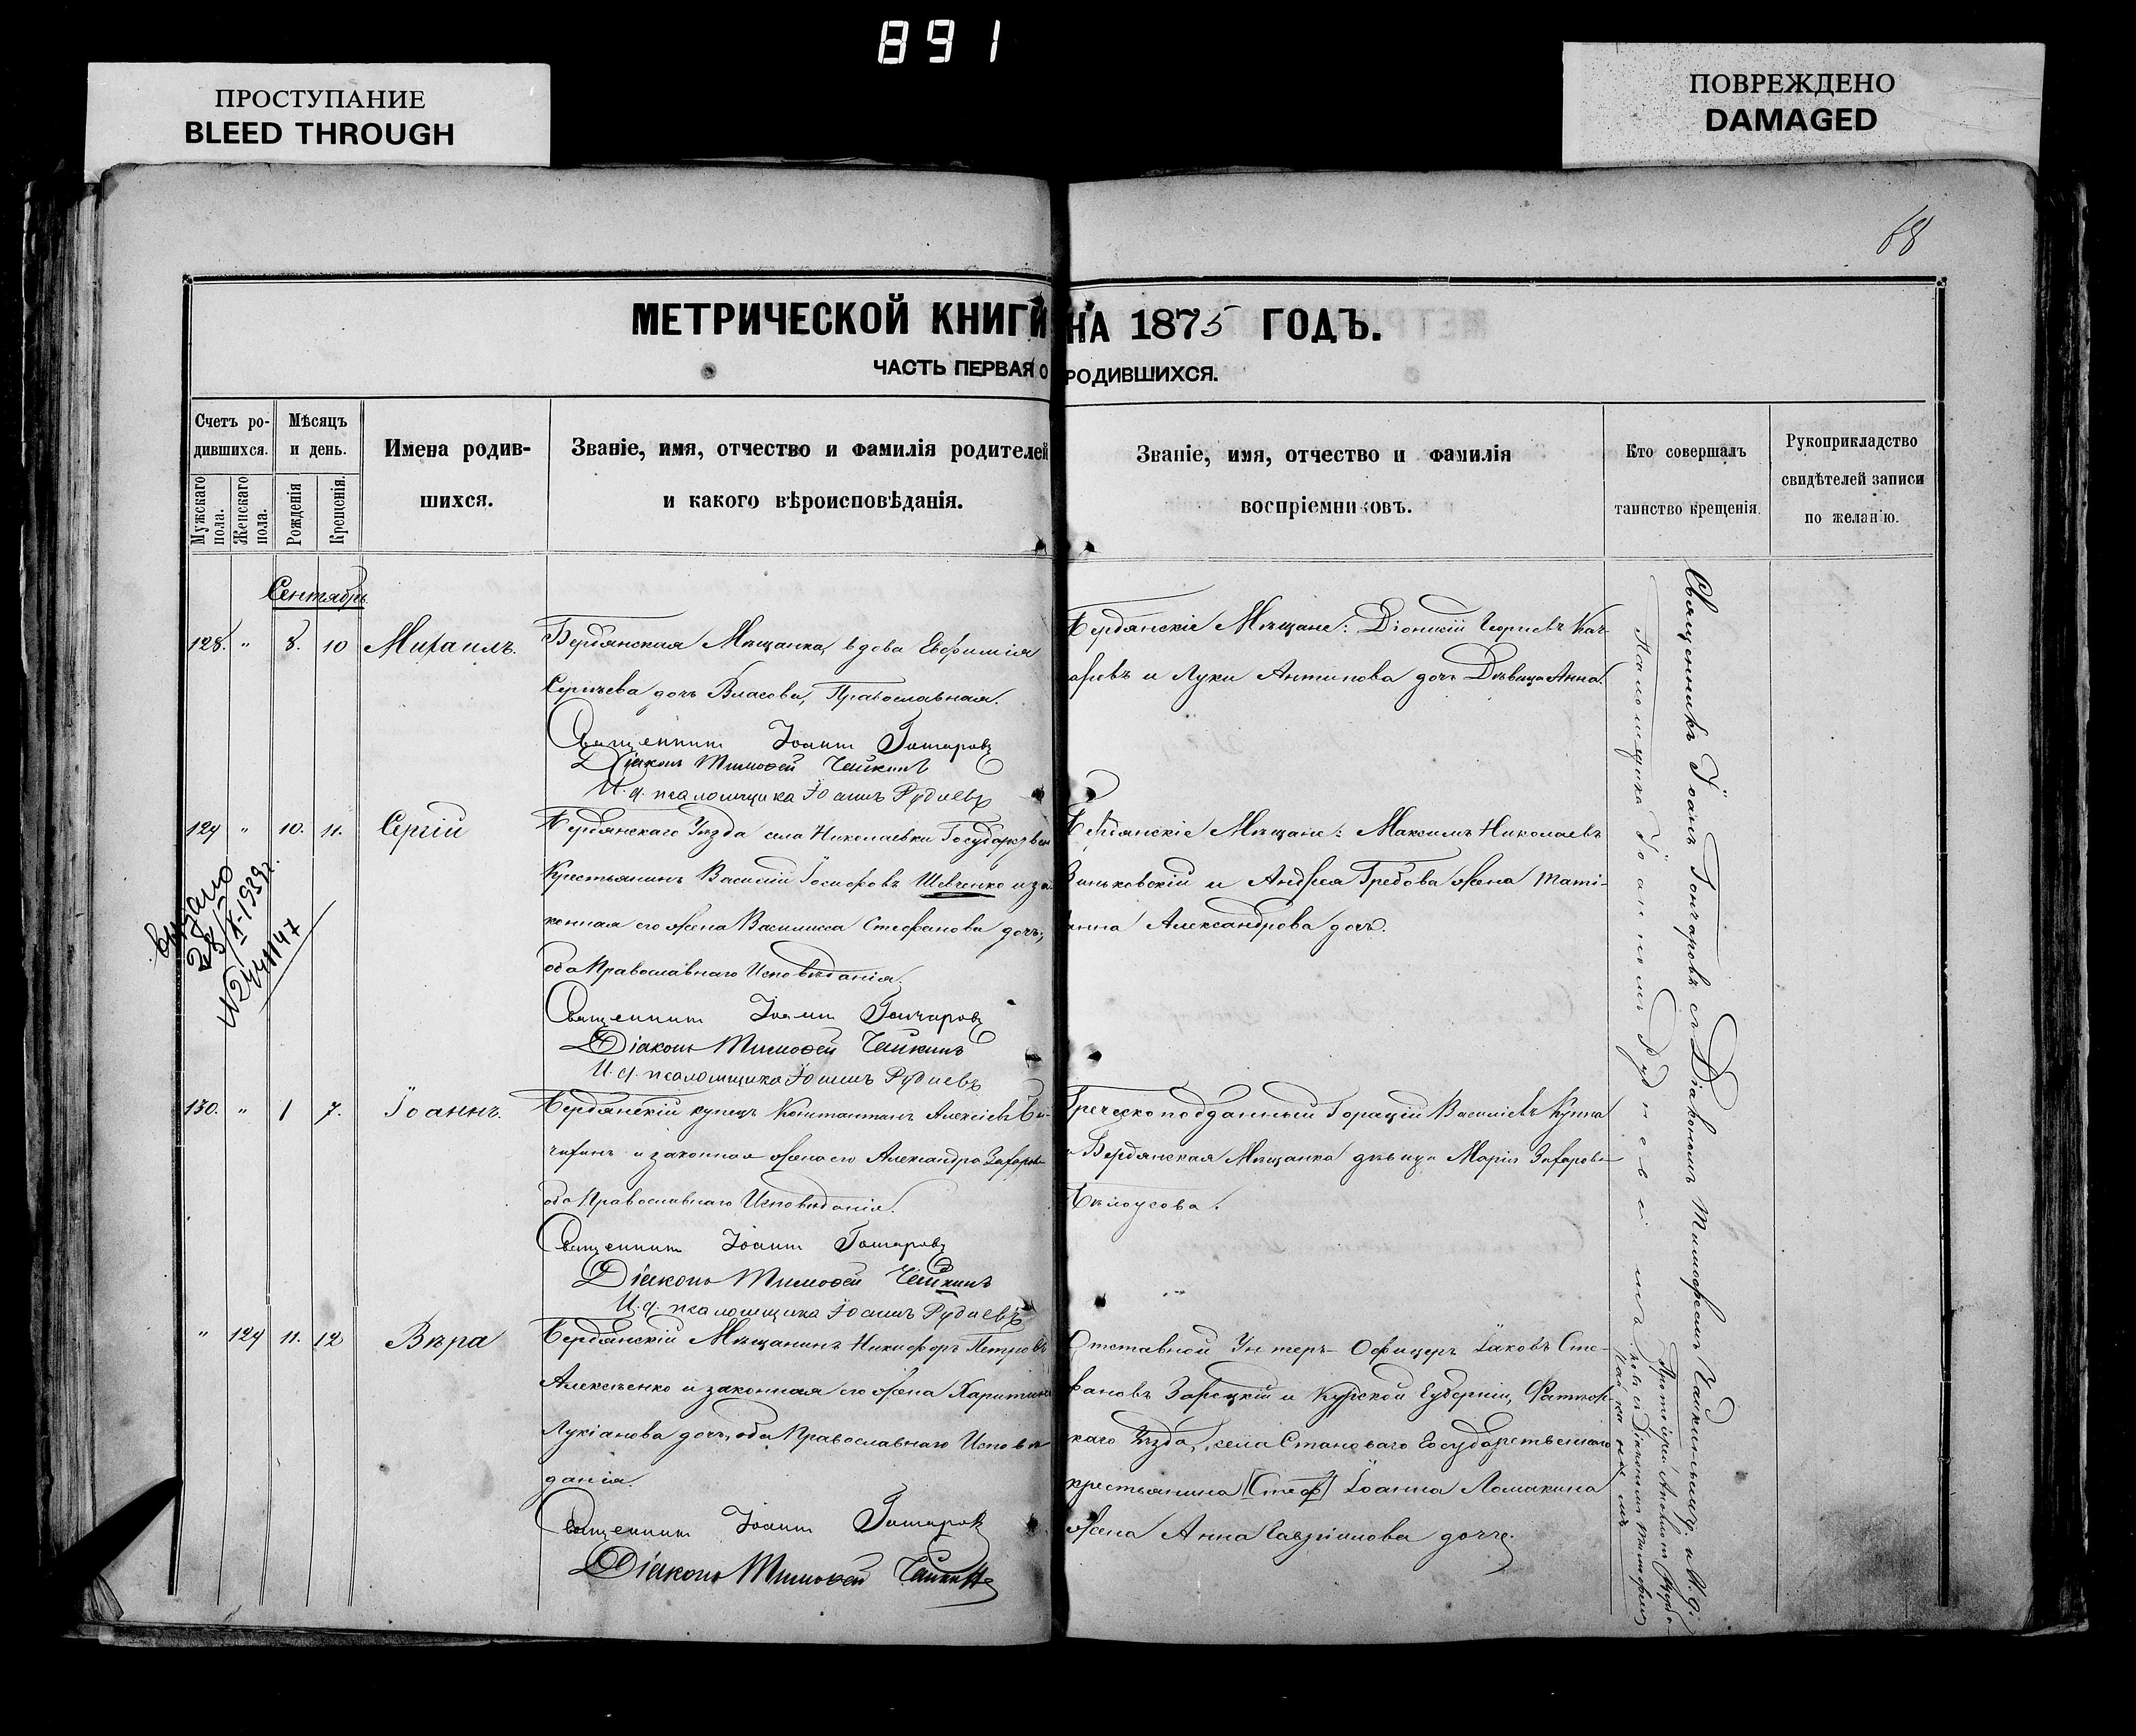 891
ПРОСТУПАНИЕ
BLEED THROUGH
ПОВРЕЖДЕНО
DAMAGED
68
МЕТРИЧЕСКОЙ КНИГИ НА 1875 ГОДЪ.
ЧАСТЬ ПЕРВАЯ О РОДИВШИХСЯ.
Счетъ ро-
дившихся.
Мужскаго пола.
Женскаго пола.
Мѣсяцъ
и день.
Рожденія
Крещенія.
Имена родив-
шихся.
Званіе, имя, отчество и фамилія родителей
и какого вѣроисповѣданія.
Званіе, имя, отчество и фамилія
воспріемниковъ.
Кто совершалъ
таинство крещенія.
Рукоприкладство
свидѣтелей записи
по желанію.
Сентябрь
128. " 8. 10 Михаилъ.
Бердянская Мѣщанка, вдова Евфимія
Сергѣева дочь Власова, Православная.
Священникъ Іоаннъ Гончаровъ
Діаконъ Тимофей Чайкинъ
И. д. псаломщика Іоаннъ Рудневъ
Бердянскіе Мѣщане: Діонисій Георгіевъ
и Луки Антипова дочь Дѣвица Анна.
129 " 10. 11. Сергій
Бердянскаго Уѣзда села Николаевки Государствен
Крестьянинъ Василій Іосифовъ Шевченко и за-
конная его жена Василисса Стефанова дочь,
оба Православнаго Исповѣданія.
Священникъ Іоаннъ Гончаровъ
Діаконъ Тимофей Чайкинъ
И. д. псаломщика Іоаннъ Рудневъ
Бердянскіе Мѣщане: Максимъ Николаевъ
и Андрея Гребова жена Тати-
анна Александрова дочь.
выдано
28/X-1939г.
130. " 1 7. Іоаннъ.
Бердянскій купецъ Константинъ Алексіевъ
и законная жена его Александра Захарова
оба Православнаго Исповѣданія.
Священникъ Іоаннъ Гончаровъ
Діаконъ Тимофей Чайкинъ
И. д. псаломщика Іоаннъ Рудневъ
Греческоподданный Горацій Василіевъ Куппа
и Бердянская Мѣщанка дѣвица Марія Захарова
Бѣлоусова.
" 129 11. 12 Вѣра
Бердянскій Мѣщанинъ Никифоръ Петровъ
Алексѣенко и законная его жена Харитина
Лукіанова дочь, оба Православнаго Исповѣ
данія.
Священникъ Іоаннъ Гончаровъ
Діаконъ Тимофей Чайкинъ
Отставной Унтеръ-Офицеръ Іаковъ Сте-
фановъ Зарецкій и Курской Губерніи, Фатеж-
каго Уѣзда, села Становаго Государственнаго
крестьянина [Стеф] Іоанна Ломакина
жена Анна Гавріилова дочь.
Священникъ Іоаннъ Гончаровъ съ Діакономъ Тимофеемъ Чайкинымъ и И. д.
Псаломщика Іоанномъ Рудневымъ
Протоіерей
съ Діакономъ Тимофеем
Чайкинымъ